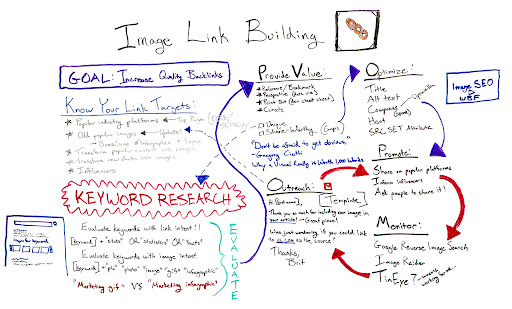 Image Link Building
GOAL: Increase Quality Backlinks
Know Your Link Targets:
* Popular industry platforms
Top Player
* Old popular images
Update!
* Transform popular content into images.
* Transform new data into images.
* Influencers
KEYWORD RESEARCH
Evaluate keywords with link intent!!
[keyword] + "stats" OR "statistics" OR "facts"
Evaluate keywords with image intent
"Marketing gifs" VS "Marketing infographic"
EVALUATE
Provide Value:
* Reference/Bookmark
* Perspective
* Print Out
* Curate
Unique
Share-Worthy
"Don't be afraid to get obvious."
- Gregory Ciotti
Why a Visual Really is Worth 1,000 Words
Optimize:
Title
Alt text
Compress
Host
SRC SET Attribute
Image SEO
WBF
Promote:
Share on popular platforms
Inform influencers
Ask people to share it!
Outreach:
[Template]
Thank you so much for including our image in
your article! Great piece!
Was just wondering if you could link
to us.com as the source?
Thanks,
Brit
Monitor:
Google Reverse Image Search
Image Raider
TinEye?